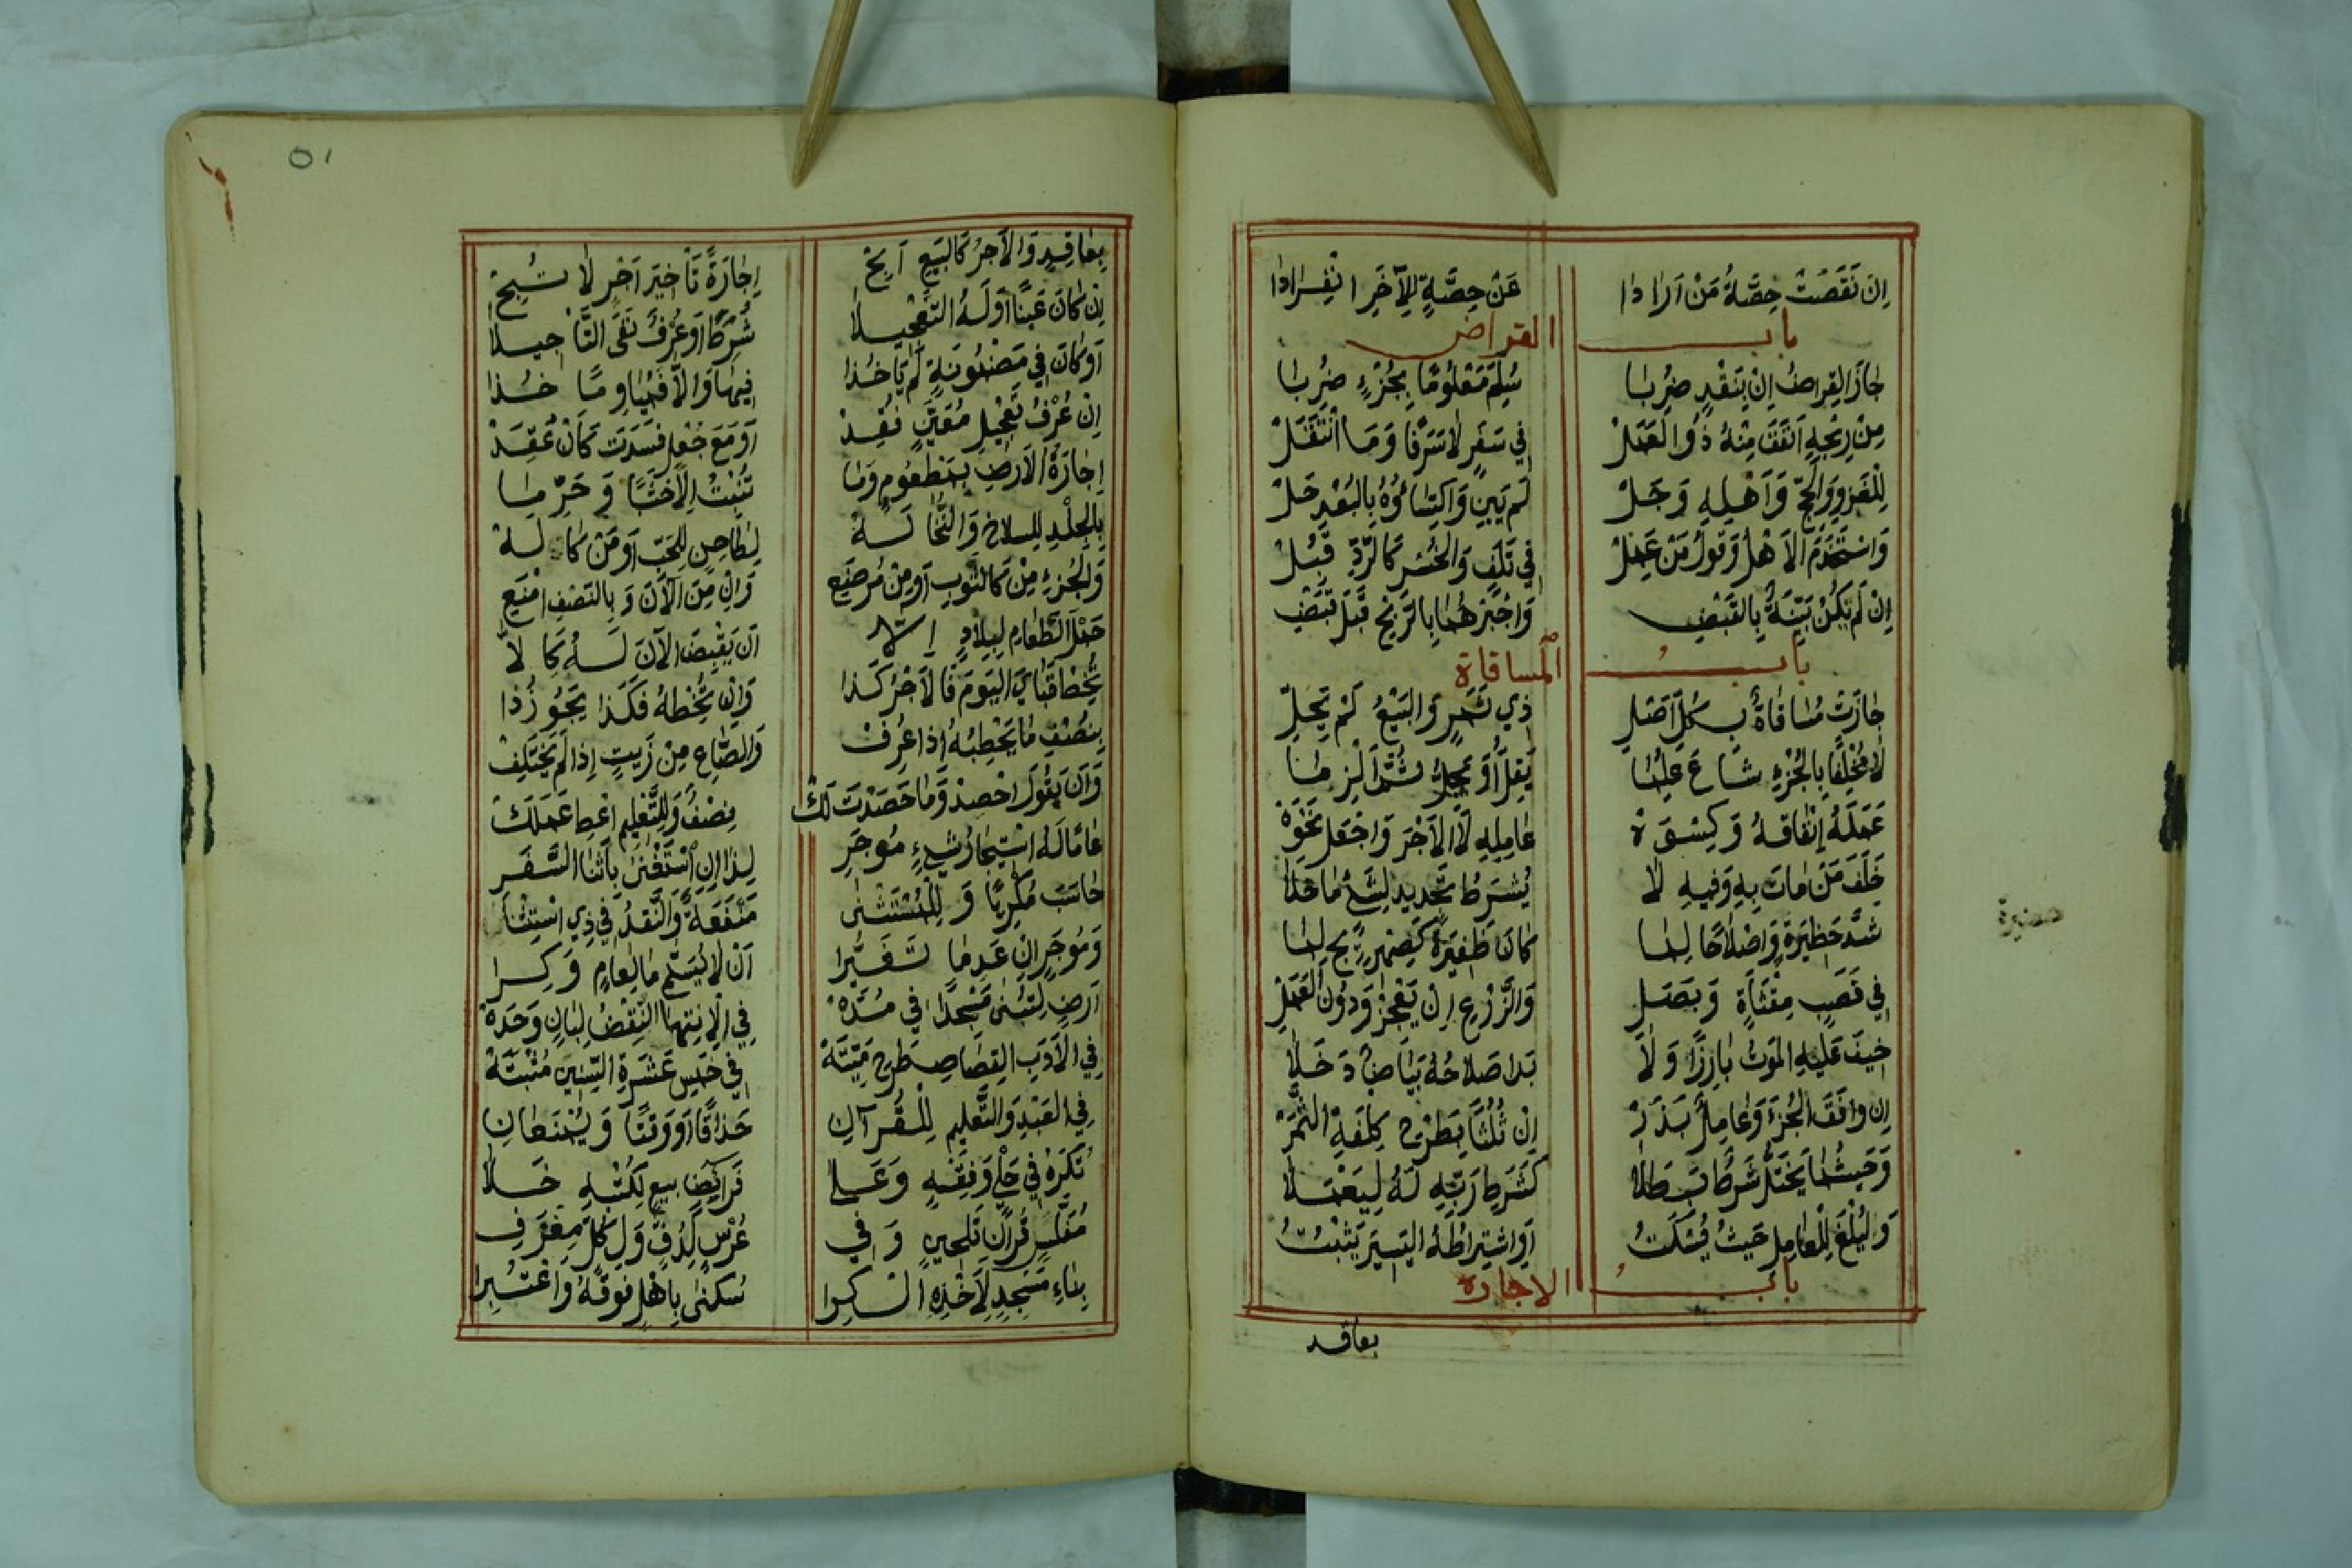 اِنْ نَقَصَتْ حِصَّةُ مَنْ اَرَادَا عَنْ حِصَّةٍ لِلْآخَرِ انْفِرَادَا
باب القراض
جَازَ القِرَاضُ اِنْ بِنَقْدٍ ضُرِبَا سُلِّمَ مَعْلُومًا بِجُزْءٍ ضُرِبَا
مِنْ رِبْحِهِ اَنْفَقَ مِنْهُ ذُو العَمَلْ فِي سَفَرٍ لَا سَرَفًا وَمَا انْتَقَلْ
لِلْغَزْوِ وَالحَجِّ وَاَهْلِهِ وَجَلْ لَمْ يَبِنِ وَاكْتِسَاؤُهُ بِالبُعْدِ حَلْ
وَاسْتَخْدَمَ الاَهْلُ وَقَوْلُ مَنْ عَمِلْ فِي تَلَفٍ وَالخُسْرِ كَالرَّدِّ قُبِلْ
اِنْ لَمْ يَكُنْ بَيِّنَةٌ بِالقَبْضِ وَاجْبُرْهُمَا بِالرِّبْحِ قَبْلَ قَبْضِ
بابُ المساقاة
جَازَتْ مُسَاقَاةٌ بِكُلِّ اَصْلِ ذِي ثَمَرٍ وَالبَيْعُ لَمْ يَحِلِّ
لَا مُخْلِفًا بِالجُزْءِ شَاعَ عُلِمَا يَقِلُّ اَوْ يَجِلُّ ثُمَّ اَلْزِمَا
عَمَلَهُ اِنْفَاقَهُ وَكِسْوَةْ عَامِلِهِ لَا الاَجْرَ وَاجْعَلْ نَحْوَهْ
خَلَفَ مَنْ مَاتَ بِهِ وَفِيهِ لَا يُشْرَطُ تَجْدِيدٌ لِشَيْءٍ مَا خَلَا
شَدَّ حَظِيرَةٍ وَاصْلَاحًا لِمَا كَانَ ظَفِيرَةً كَصِهْرِيجٍ لِمَا
فِي قَصَبٍ مِقْثَاةٍ وَبَصَلِ وَالزَّرْعِ اِنْ يَعْجَزْ وَدُونَ العَمَلِ
خِيفَ عَلَيْهِ المَوْتُ بَارِزًا وَلَا بَدَا صَلَاحُهُ بَيَاضًا دَخَلَا
اِنْ وَافَقَ الجُزْءَ وَعَامِلٌ بَذَرْ اِنْ ثُلُثًا بِطَرْحِ كِلْفَةِ الثَّمَرْ
وَحَيْثُمَا يَخْتَلُّ شَرْطٌ بَطَلَا كَشَرْطِ رَبِّهِ لَهُ لِيَعْمَلَا
وَلْيُلْغَ لِلْعَامِلِ حَيْثُ يُسْكَتُ اَوِ اشْتِرَاطُهُ اليَسِيرَ يَثْبُتُ
بابُ الاجارة
بعاقد
٥١
بِعَاقِدٍ وَالاَجْرُ كَالبَيْعِ اَبِحْ اِجَارَةً تَاْخِيرَ اَجْرٍ لَا تُبِحْ
اِنْ كَانَ عَيْنًا اَوْ لَهُ التَّعْجِيلَا شُرِطَ اَوْ عُرْفٌ نَفَى التَّاْجِيلَا
اَوْ كَانَ فِي مَضْمُونَةٍ لَمْ يَاْخُذَا فِيهَا وَاِلَّا فَمُيَاوِمًا خُذَا
اِنْ عُرْفُ تَعْجِيلِ مُعَيَّنٍ فُقِدْ اَوْ مَعَ جُعْلٍ فَسَدَتْ كَاَنْ عُقِدْ
اِجَارَةُ الاَرْضِ بِمَطْعُومٍ وَمَا تُنْبِتُ اِلَّا خَشَبًا وَحَرِّمَا
بِالجِلْدِ لِلسَّلَّاخِ وَالنُّخَالَهْ لِطَاحِنٍ لِلْحَبِّ اَوْ مَنْ كَالَهْ
وَالجُزْءِ مِنْ كَالثَّوْبِ اَوْ مِنْ مُرْضَعِ وَاِنْ مِنَ الآنَ وَبِالنِّصْفِ امْنَعِ
حَمْلَ الطَّعَامِ لِبِلَادٍ اِلَّا اَنْ يَقْبِضَ الآنَ لَهُ كَالَّا
يُخِطْ قَبَايَ اليَوْمَ فَالاَجْرُ كَذَا وَاِنْ يُخِطْهُ فَكَذَا يَجُوزُ ذَا
بِنِصْفِ مَا يَحْطِبُهُ اِذَا عُرِفْ وَالصَّاعِ مِنْ زَيْتٍ اِذَا لَمْ يَخْتَلِفْ
وَاَنْ يَقُولَ احْصِدْ وَمَا حَصَدْتَ لَكْ نِصْفٌ وَلِلتَّعْلِيمِ اَعْطِ عَمَلَكْ
عَامًا لَهُ اسْتِيجَارُ شَيْءٍ مُوجَرِ لِذَا اِنِ اسْتَغْنَى بِاَثْنَا السَّفَرِ
حَاسَبَ مُكْرِيًا وَلِلْمُسْتَثْنَى مَنْفَعَةً وَالنَّقْدُ فِي ذِي اسْتِثْنَا
وَمُوجَرٍ اِنْ عَدِمَا تَغَيُّرَا اَنْ لَا يُسَلَّمَ مَا لِعَامٍ وَكِرَا
اَرْضٍ لِتُبْنَى مَسْجِدًا فِي مُدَّهْ فِي الاِنْتِهَا النَّقْضُ لِبَانٍ وَحْدَهْ
فِي الاَدَبِ القِصَاصِ طَرْحِ مَيْتَةْ فِي خَمْسِ عَشْرَةَ السِّنِينَ مُثْبَتَةْ
فِي العَبْدِ وَالتَّعْلِيمِ لِلْقُرْآنِ حَذَاقًا اَوْ وَقْتًا وَيُمْنَعَانِ
تُكْرَهُ فِي حَلْيٍ وَفِقْهٍ وَعَلَى فَرَائِضٍ بَيْعٍ لِكُتْبِهِ خَلَا
مُفَلَّسٍ قُرْآنِ تَلْحِينٍ وَفِي عُرْسٍ لِدُفٍّ وَلِكُلِّ مِعْزَفِ
بِنَاءِ مَسْجِدٍ لِاَخْذِهِ الكِرَا سُكْنَى بِاَهْلٍ فَوْقَهُ وَاعْتُبِرَا